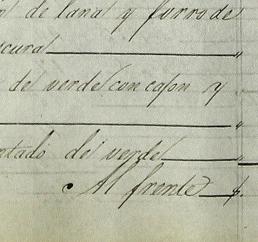 de lana y forro de
scura
de verde con cajon y
ntado de verde
Al frente